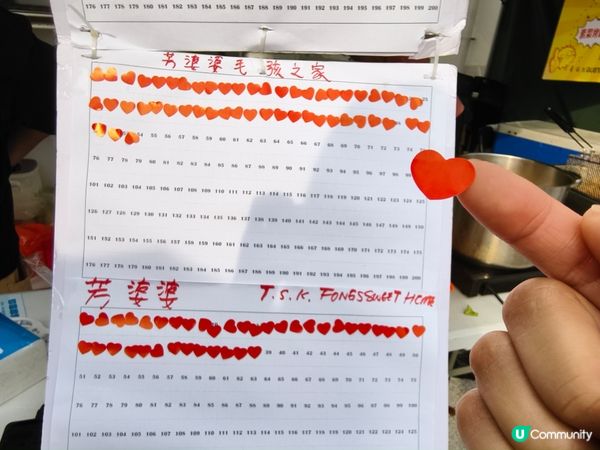 176 177 178 179 180 181 182 183 184 185 186 187 188 189 190 191 192 193 194 195 196 197 198 199 200
芳婆婆毛孩之家
25
54 55 56 57 58 59 60 61 62 63 64 65 66 67 68 69 70 71 72 73 74 75
76 77 78 79 80 81 82 83 84 85 86 87 88 89 90 91 92 93 94 95 96 97 98 99
101 102 103 104 105 106 107 108 109 110 111 112 113 114 115 116 117 118 119 120 121 122 123 124 125
126 127 128 129 130 131 132 133 134 135 136 137 138 139 140 141 142 143 144 145 146 147 148 149 150
151 152 153 154 155 156 157 158 159 160 161 162 163 164 165 166 167 168 169 170 171 172 173 174 175
176 177 178 179 180 181 182 183 184 185 186 187 188 189 190 191 192 193 194 195 196 197 198 199 200
芳婆婆 T.S.K. FONGSSWEET HOME
39 40 41 42 43 44 45 46 47 48 49 50
51 52 53 54 55 56 57 58 59 60 61 62 63 64 65 66 67 68 69 70 71 72 73 74 75
76 77 78 79 80 81 82 83 84 85 86 87 88 89 90 91 92 93 94 95 96 97 98 99 100
101 102 103 104 105 106 107 108 109 110 111 112 113 114 115 116 117 118 119 120 121 122 123 124 125
U Community